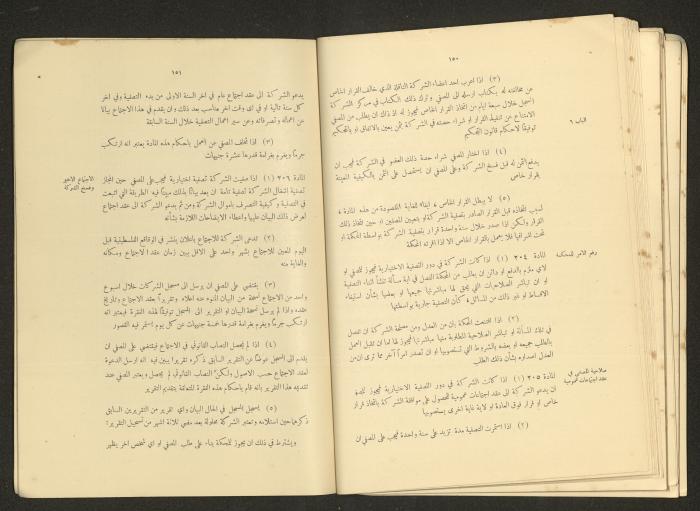 ١٥٠
(٣) اذا اعرب احد اعضاء الشركة الناقلة الذي خالف القرار الخاص
عن مخالفته له بكتاب ارسله الى المصفي وترك ذلك الكتاب في مركز الشركة
المسجل خلال سبعة ايام من اتخاذ القرار الخاص فيجوز له اذ ذاك ان يطلب من المصفي
الامتناع عن تنفيذ القرار او شراء حصته في الشركة بثمن يعين بالاتفاق او بالتحكيم
الباب ٦
توفيقاً لاحكام قانون التحكيم
(٤) اذا اختار المصفي شراء حصة ذلك العضو في الشركة فيجب ان
يدفع الثمن له قبل فسخ الشركة وعلى المصفي ان يستحصل على الثمن بالكيفية المعينة
بقرار خاص
(٥) لا يبطل القرار الخاص بسبب
اتخاذه قبل القرار الصادر بتصفية الشركة او بتعيين المصفين او حين اتخاذ ذلك
القرار ولكن اذا صدر خلال سنة واحدة قرار بتصفية الشركة بواسطة المحكمة او
تحت اشرافها فلا يعمل بالقرار الخاص الا اذا اقرته المحكمة
المادة ٢٠٤ (١) اذا كانت الشركة في دور التصفية الاختيارية فيجوز للمصفي او
رفع الامر للمحكمة
لاي ملزم بالدفع او دائن ان يطلب من المحكمة الفصل في اية مسألة تنشأ اثناء التصفية
او ان تباشر الصلاحيات التي يحق لها مباشرتها جميعها او بعضها بشأن استيفاء
الاقساط او غير ذلك من المسائل كأن التصفية جارية بواسطتها
(٢) اذا اقتنعت المحكمة بان من العدل ومن مصلحة الشركة ان تفصل
في تلك المسألة او تباشر الصلاحية المطلوب منها مباشرتها فيجوز لها اما ان تقبل العمل
بالطلب جميعه او بعضه بالشروط التي تستصوبها او ان تصدر امراً آخر مما ترى ان من
العدل اصداره بشأن ذلك الطلب
المادة ٢٠٥ (١) اذا كانت الشركة في دور التصفية الاختيارية فيجوز للمصفي
صلاحية المصفي في
عقد اجتماعات عمومية
ان يدعو الشركة الى عقد اجتماعات عمومية للحصول على موافقة الشركة باتخاذ قرار
خاص او قرار فوق العادة او لاية غاية اخرى يستصوبها
(٢) اذا استمرت التصفية مدة تزيد على سنة واحدة فيجب على المصفي ان
١٥١
يدعو الشركة الى عقد اجتماع عام في اخر السنة الاولى من بدء التصفية وفي اخر
كل سنة تالية او في اي وقت اخر مناسب بعد ذلك وان يقدم في هذا الاجتماع بيانا
عن اعماله وتصرفاته وعن سير اعمال التصفية خلال السنة السابقة
(٣) اذا تخلف المصفي عن العمل باحكام هذه المادة يعتبر انه ارتكب
جرماً ويغرم بغرامة قدرها عشرة جنيهات
المادة ٢٠٦ (١) اذا صفيت الشركة تصفية اختيارية فيجب على المصفي حين انجاز
الاجتماع الاخير
وفسخ الشركة
تصفية اشغال الشركة تصفية تامة ان يعد بيانا بذلك مبينا فيه الطريقة التي اتبعت
في التصفية وكيفية التصرف باموال الشركة ومن ثم يدعو الشركة الى عقد اجتماع
لعرض ذلك البيان عليها واعطاء الايضاحات اللازمة بشأنه
(٢) تدعى الشركة للاجتماع باعلان ينشر في الوقائع الفلسطينية قبل
اليوم المعين للاجتماع بشهر واحد على الاقل يبين زمان عقد الاجتماع ومكانه
والغاية منه
(٣) يقتضي على المصفي ان يرسل الى مسجل الشركات خلال اسبوع
واحد من الاجتماع نسخة عن البيان المنوه عنه اعلاه وتقريراً بعقد الاجتماع وتاريخ
عقده واذا لم يرسل نسخة البيان او التقرير الى المسجل توفيقا لهذه الفقرة فيعتبر انه
ارتكب جرماً ويغرم بغرامة قدرها خمسة جنيهات عن كل يوم استمر فيه القصور
(٤) اذا لم يحصل النصاب القانوني في الاجتماع فيقتضي على المصفي ان
يقدم الى المسجل عوضاً عن التقرير السابق ذكره تقريراً يبين فيه انه ارسل الدعوة
لعقد الاجتماع حسب الاصول ولكن النصاب القانوني لم يحصل ويعتبر المصفي عند
تقديم هذا التقرير بانه قام باحكام هذه الفقرة المتعلقة بتقديم التقرير
(٥) يسجل المسجل في الحال البيان واي تقرير من التقريرين السابق
ذكرهما حين استلامه وتعتبر الشركة محلولة بعد مضي ثلاثة اشهر من تسجيل التقرير:
ويشترط في ذلك ان يجوز للمحكمة بناء على طلب المصفي او اي شخص اخر يظهر